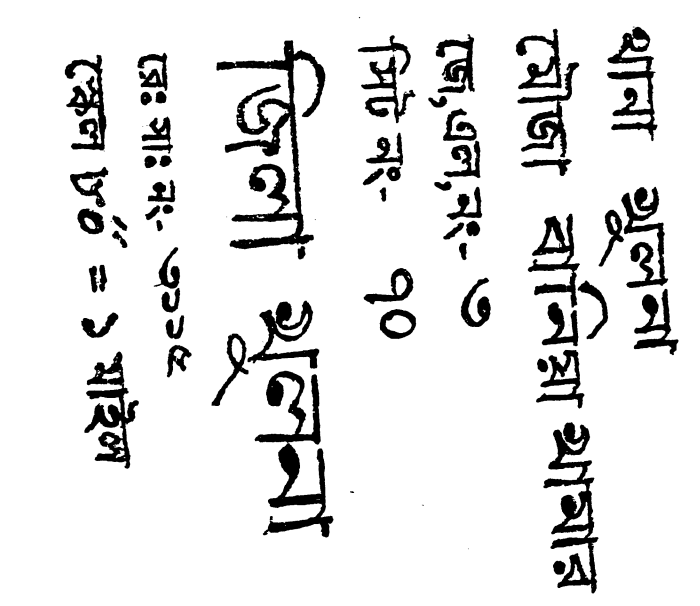 থানা খুলনা
মৌজা বানিয়া খামার
জে,এল,নং- ৩
সিট নং- ৭০
জিলা খুলনা
রেঃ সাঃ নং-
স্কেল ৮০" = ১ মাইল